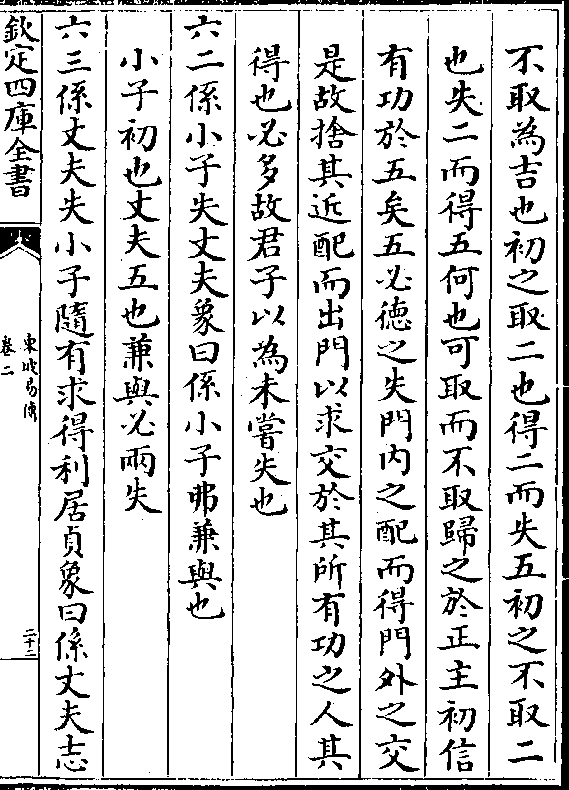 不取為吉也初之取二也得二而失五初之不取二
也失二而得五何也可取而不取歸之於正主初信
有功於五矣五必德之失門内之配而得門外之交
是故捨其近配而出門以求交於其所有功之人其
得也必多故君子以為未嘗失也
六二係小子失丈夫象曰係小子弗兼與也
小子初也丈夫五也兼與必兩失
六三係丈夫失小子隨有求得利居貞象曰係丈夫志
欽定四庫全書
東坡易傳
卷二
二十三